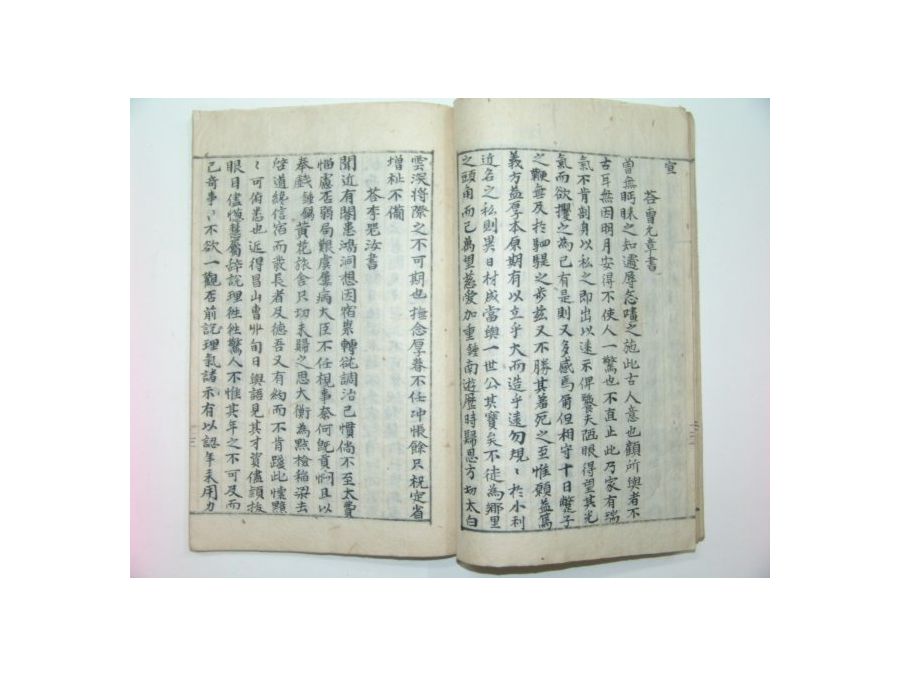 宣
答曺允章書
曾無眄睞之知還辱忘嘻之施此古人意也顧所與者不
古耳無因明月安得不使人一驚也不直止此乃家有瑞
氣不肯割身以私之即出以遠示俾聾夫陋眼得望其光
氣而欲攫之為己有是則又多感焉爾但相守十日蹩子
之鞭無及於駟騠之步茲又不勝其著死之至惟願益篤
義方益厚本原期有以立乎大而造乎遠勿規〻於小利
近名之私則異日材成當與一世公其寶矣不徒為鄉里
之頭角而已為望慈愛加重鍾南遊歷時歸思方切太白
雲深將際之不可期也撫念厚眷不任冲悵餘只祝定省
增祉不備
答李聖汝書
聞近有閤患鴻洞想因宿祟轉就調治已慣倘不至太費
惱慮否弱局艱虞屢病大臣不任視事奈何旣貢悶且以
奉餞鍾錫黃花旅舍只切未歸之思大衡為點檢稻梁去
啓道纔信宿而裁長者及德吾又有約而不肯踐此懷顥
〻可俯悉也近得昌山曺艸旬日與語見其才資儘穎拔
眼目儘慎慧屬辭說理徃徃驚人不惟其年之不可及而
已奇事〻不欲一觀否前說理氣諸示有以認年來用力